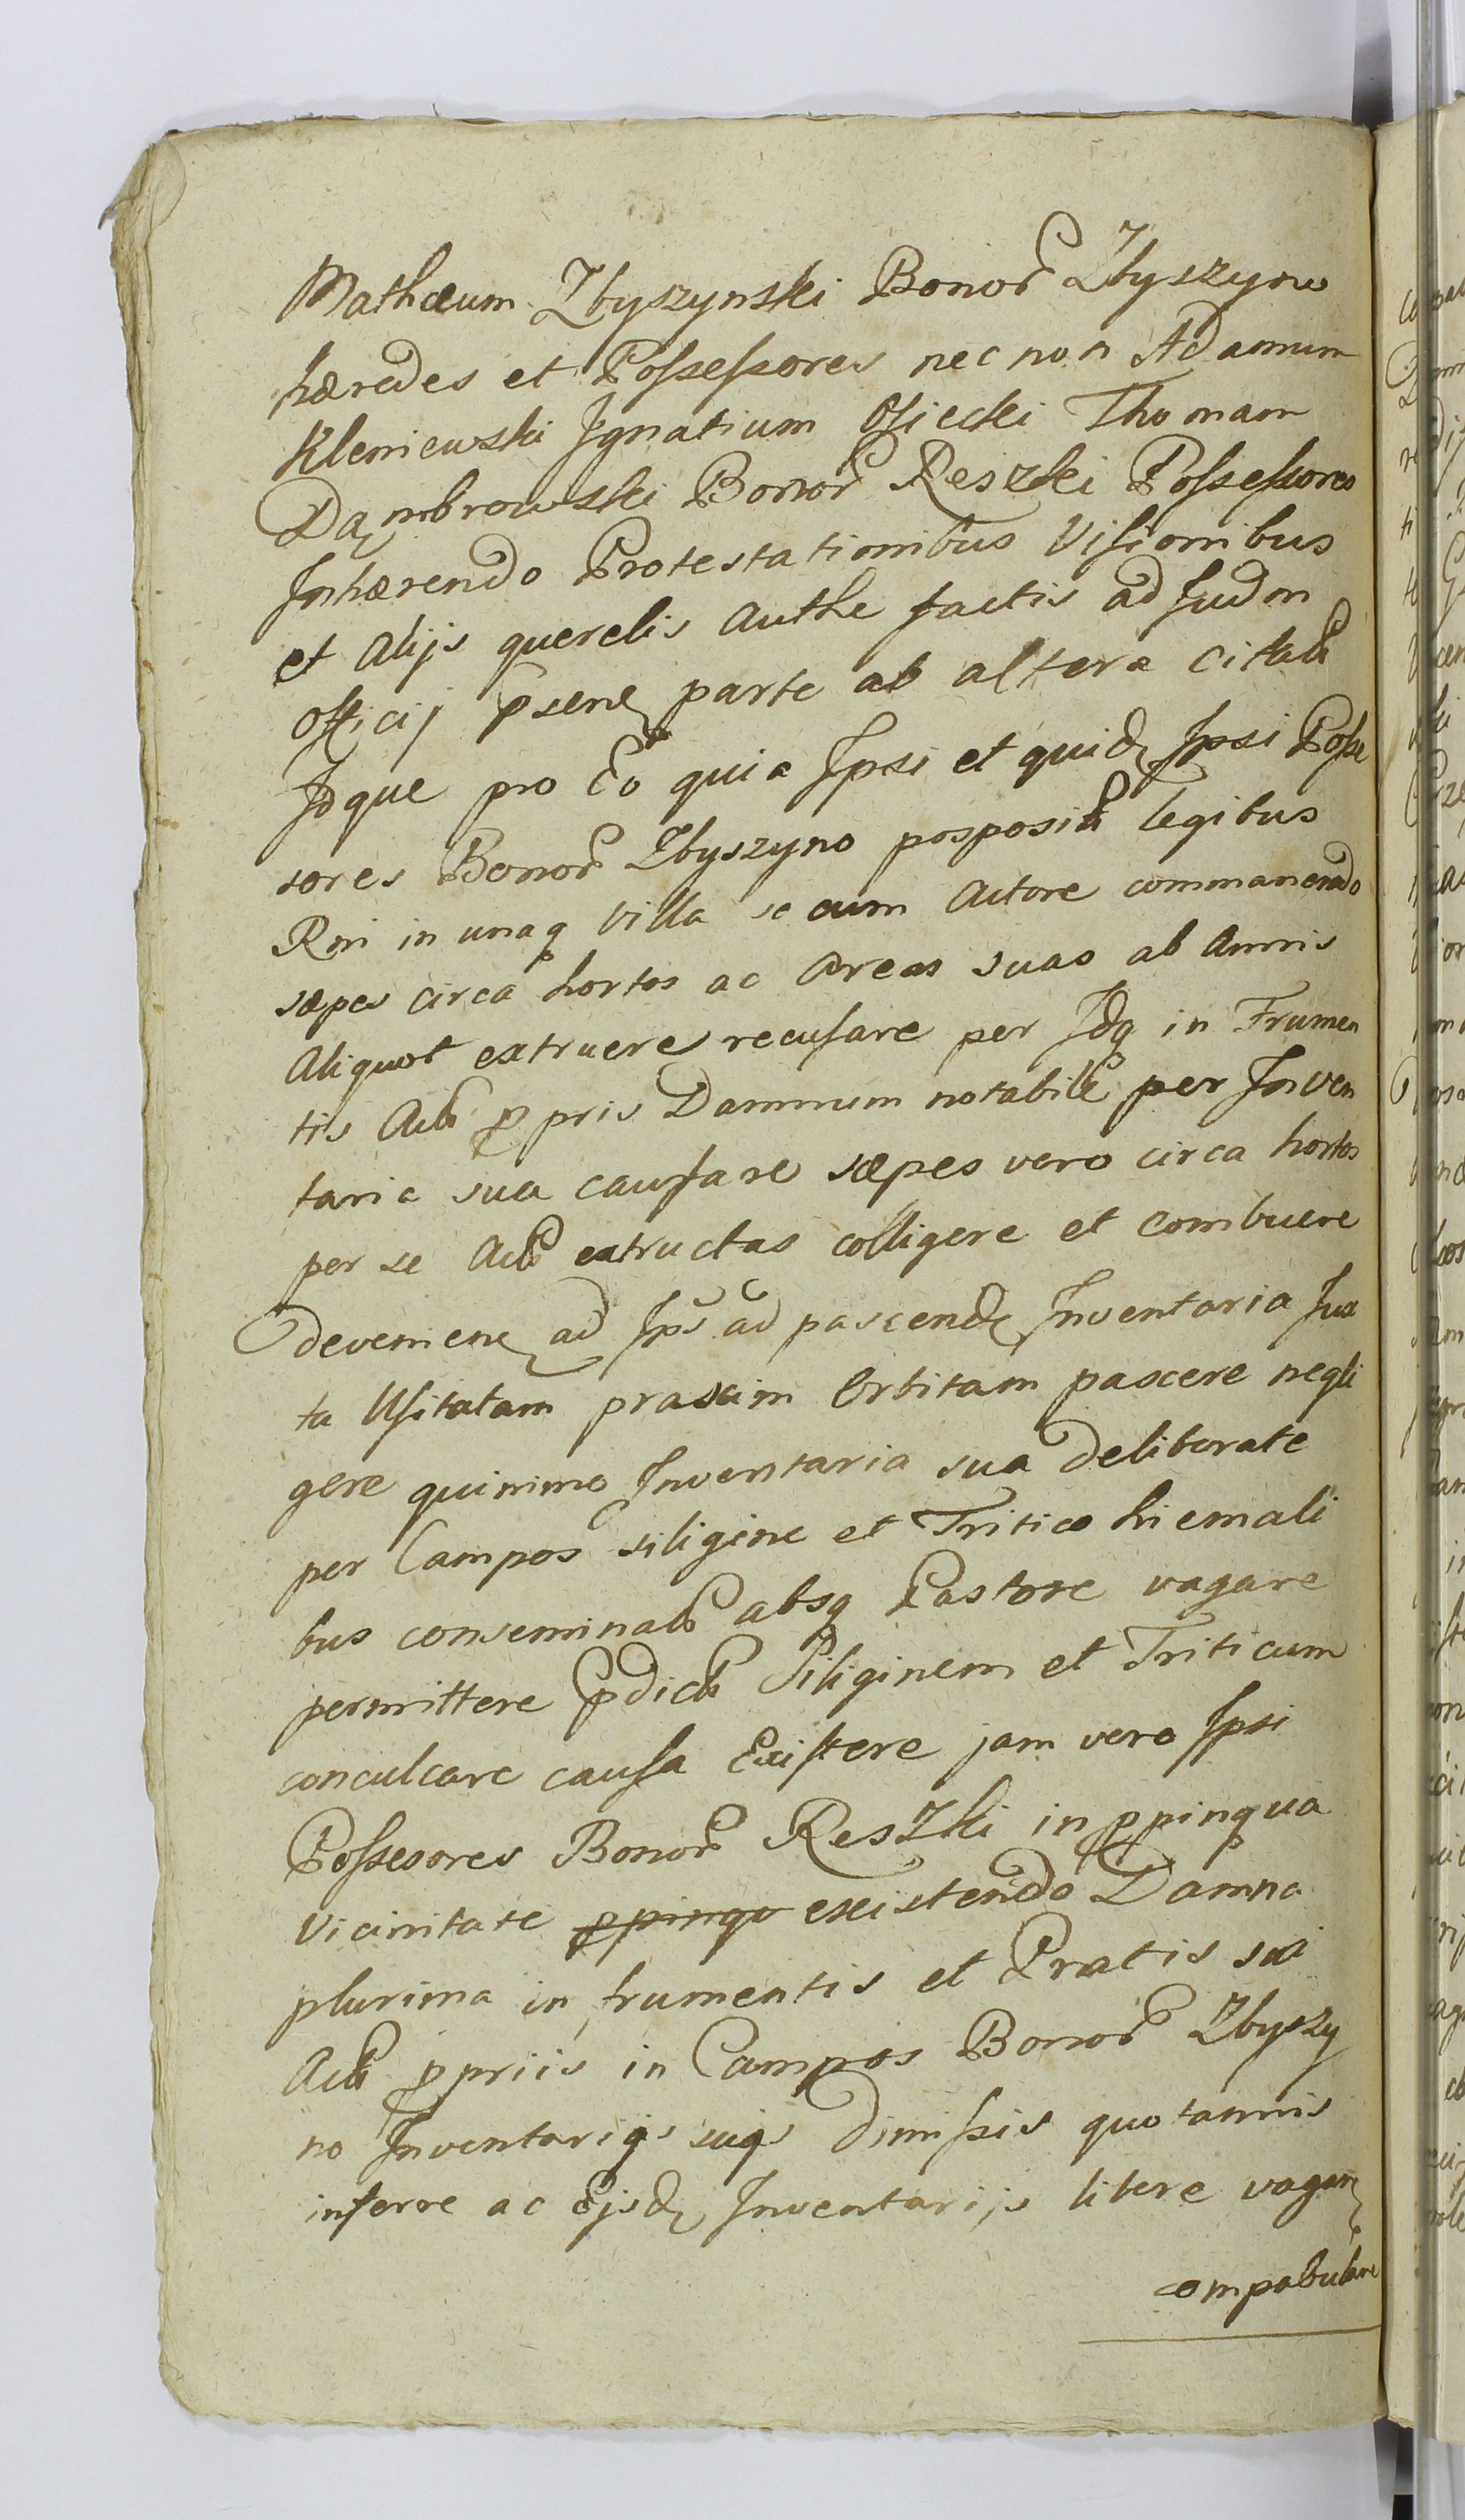 Mathæum Zbyszynski Bonor Zbyszyno
hæredes et Possessores nec non Adamum
Kleniewski Ignatium Osiecki Thomam
Dąmbrowski Bonor Reszki Possessores
Inhærendo Protestationibus Visionibus
et Alijs querelis Authe factis ad Judm
Officij psene parte ab altera Citat
Idque pro Eo quia Ipsi et quid Ipsi Posse
sores Bonor Zbyszyno posposit legibus
Rni in unaq Villa se cum Actore commanendo
sæpes circa hortos ac Areas suas ab Annis
Aliquot extruere recusare per Idq in Frumen
tis Act ppris Damnum notabile per Inven
taria sua causare sæpes vero circa hortos
per se Act extructas colligere et Comburere
deveniene ad Ips ad pascend Inventaria Jux
ta Usitatam praxim Orbitam pascere negli
gere quinimo Inventaria sua deliberate
per Campos siligine et Tritico hiemali
bus conseminat absq Pastore vagare
permittere pdict Siliginem et Triticum
conculcare causa Existere jam vero Ipsi
Possesores Bonor ResZki in ppinqua
Vicinitate ppinqu existendo Damna
plurima in frumentis et Pratis sui
Act ppriis in Campos Bonor Zbyszy
no Inventarijs suis dimissis quotannis
inferre ac Ejsd Inventarijs libere vagan
compabulare